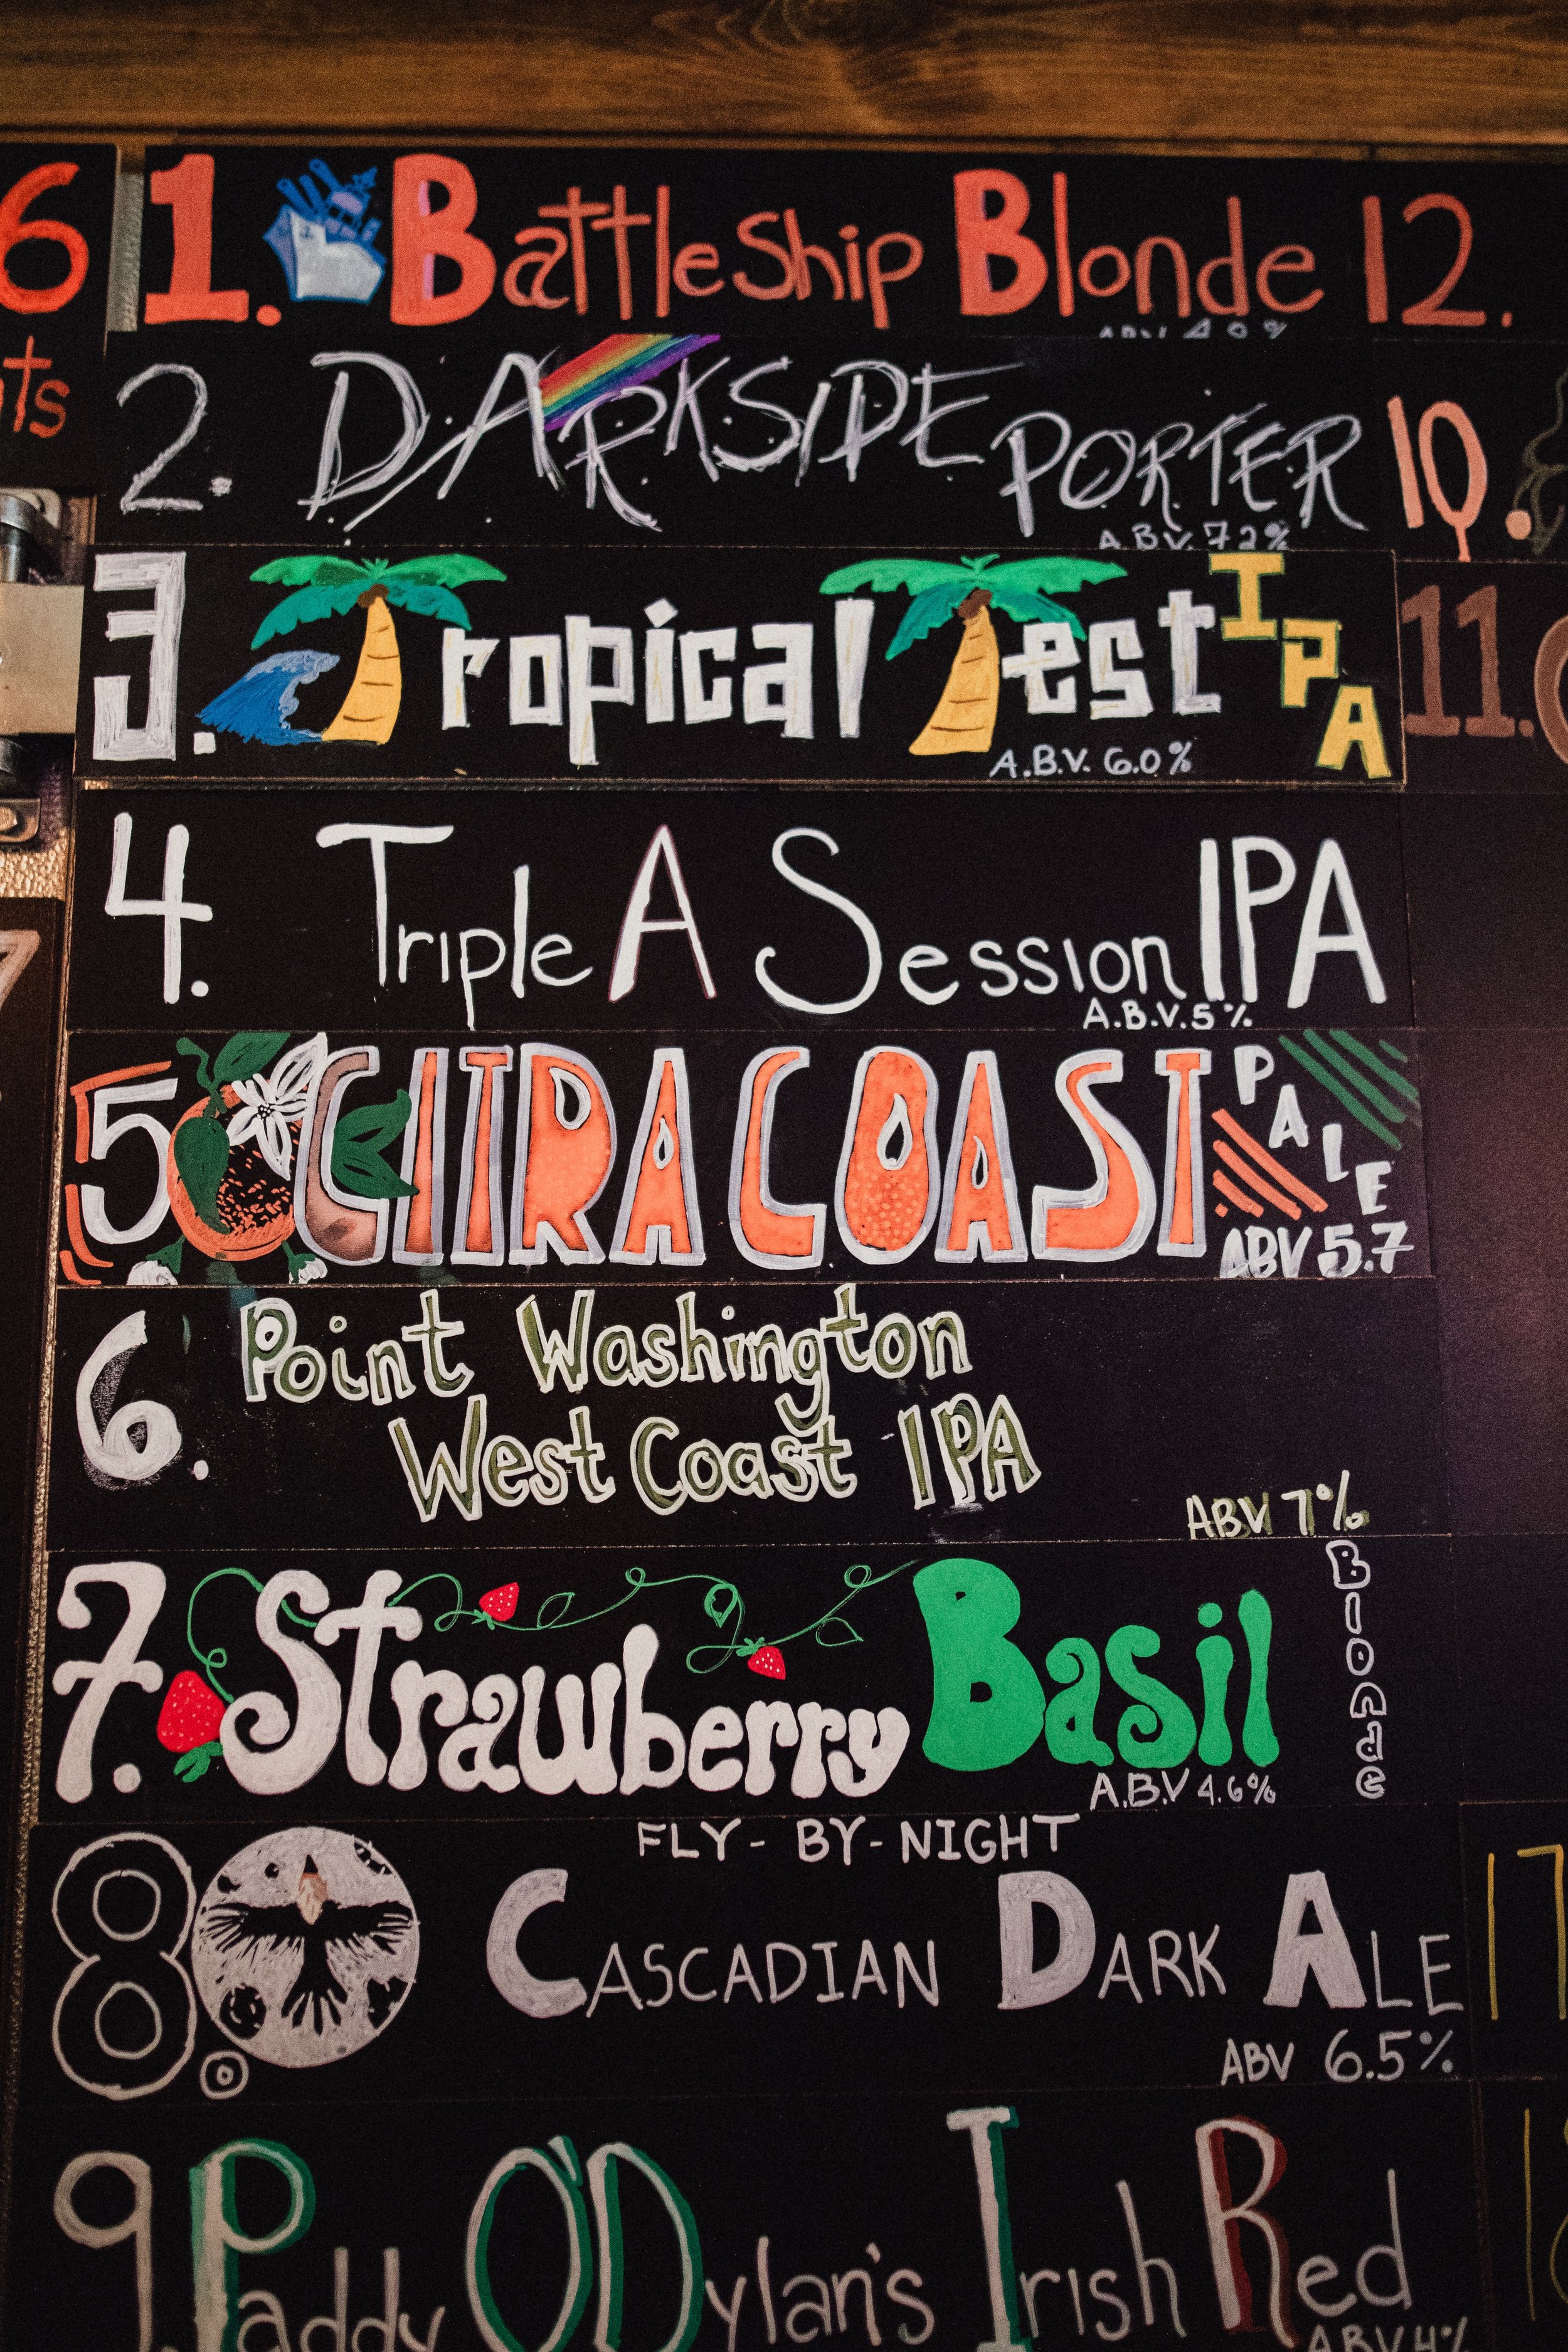 6
ts
1. Battleship Blonde
12.
2. DARKSIDE PORTER
A.B.V. 7.2%
10.
3. Tropical Test IPA
A.B.V. 6.0%
11.
4. Triple A Session IPA
A.B.V. 5%
5 CITRA COAST PALE
ABV 5.7
6. Point Washington
West Coast IPA
ABV 7%
7. Strawberry Basil Blonde
A.B.V 4.6%
FLY-BY-NIGHT
8. CASCADIAN DARK ALE
ABV 6.5%
17
9. Paddy O'Dylan's Irish Red
ABV 4%